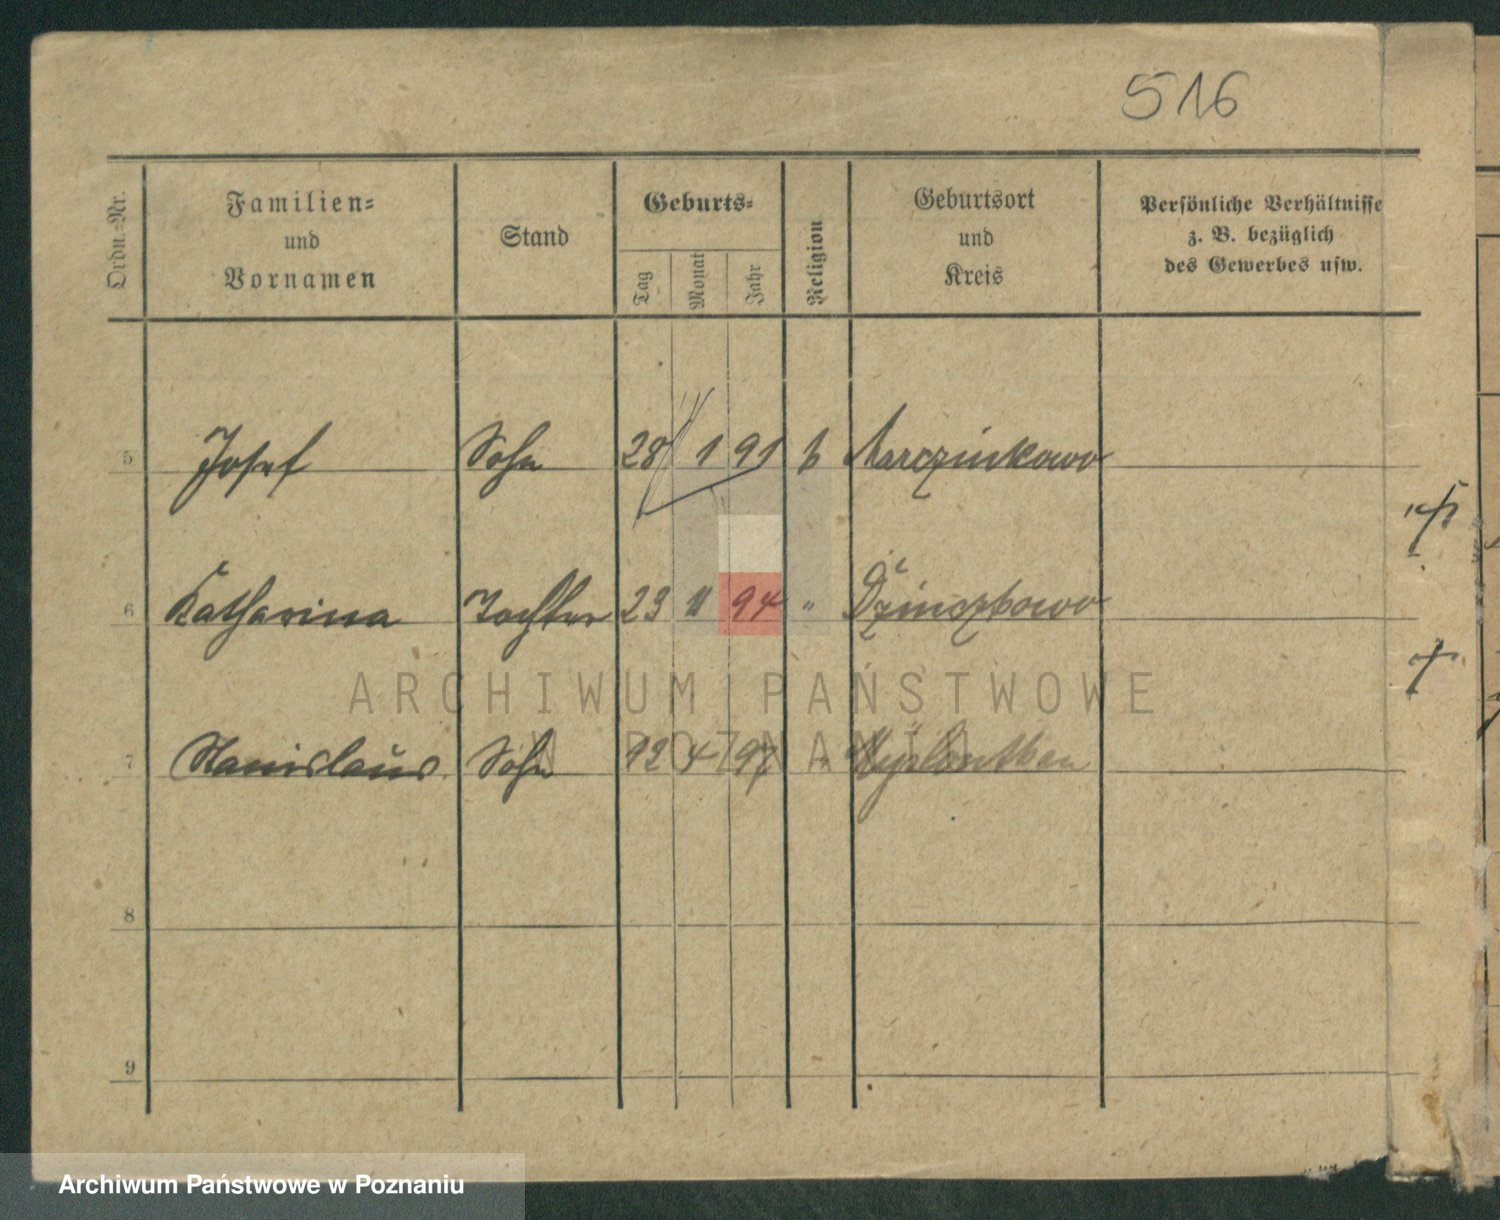 516
Ordn.-Nr.
Familien-
und
Vornamen
Stand
Geburts-
Tag
Monat
Jahr
Religion
Geburtsort
und
Kreis
Persönliche Verhältnisse
z. B. bezüglich
des Gewerbes usw.
5 Josef Sohn 28 1 91 k Marczinkowo
6 Katharina Tochter 23 11 94 "
7 Stanislaus Sohn 12 4 97 "
8
9
ARCHIWUM PAŃSTWOWE
W POZNANIU
Archiwum Państwowe w Poznaniu